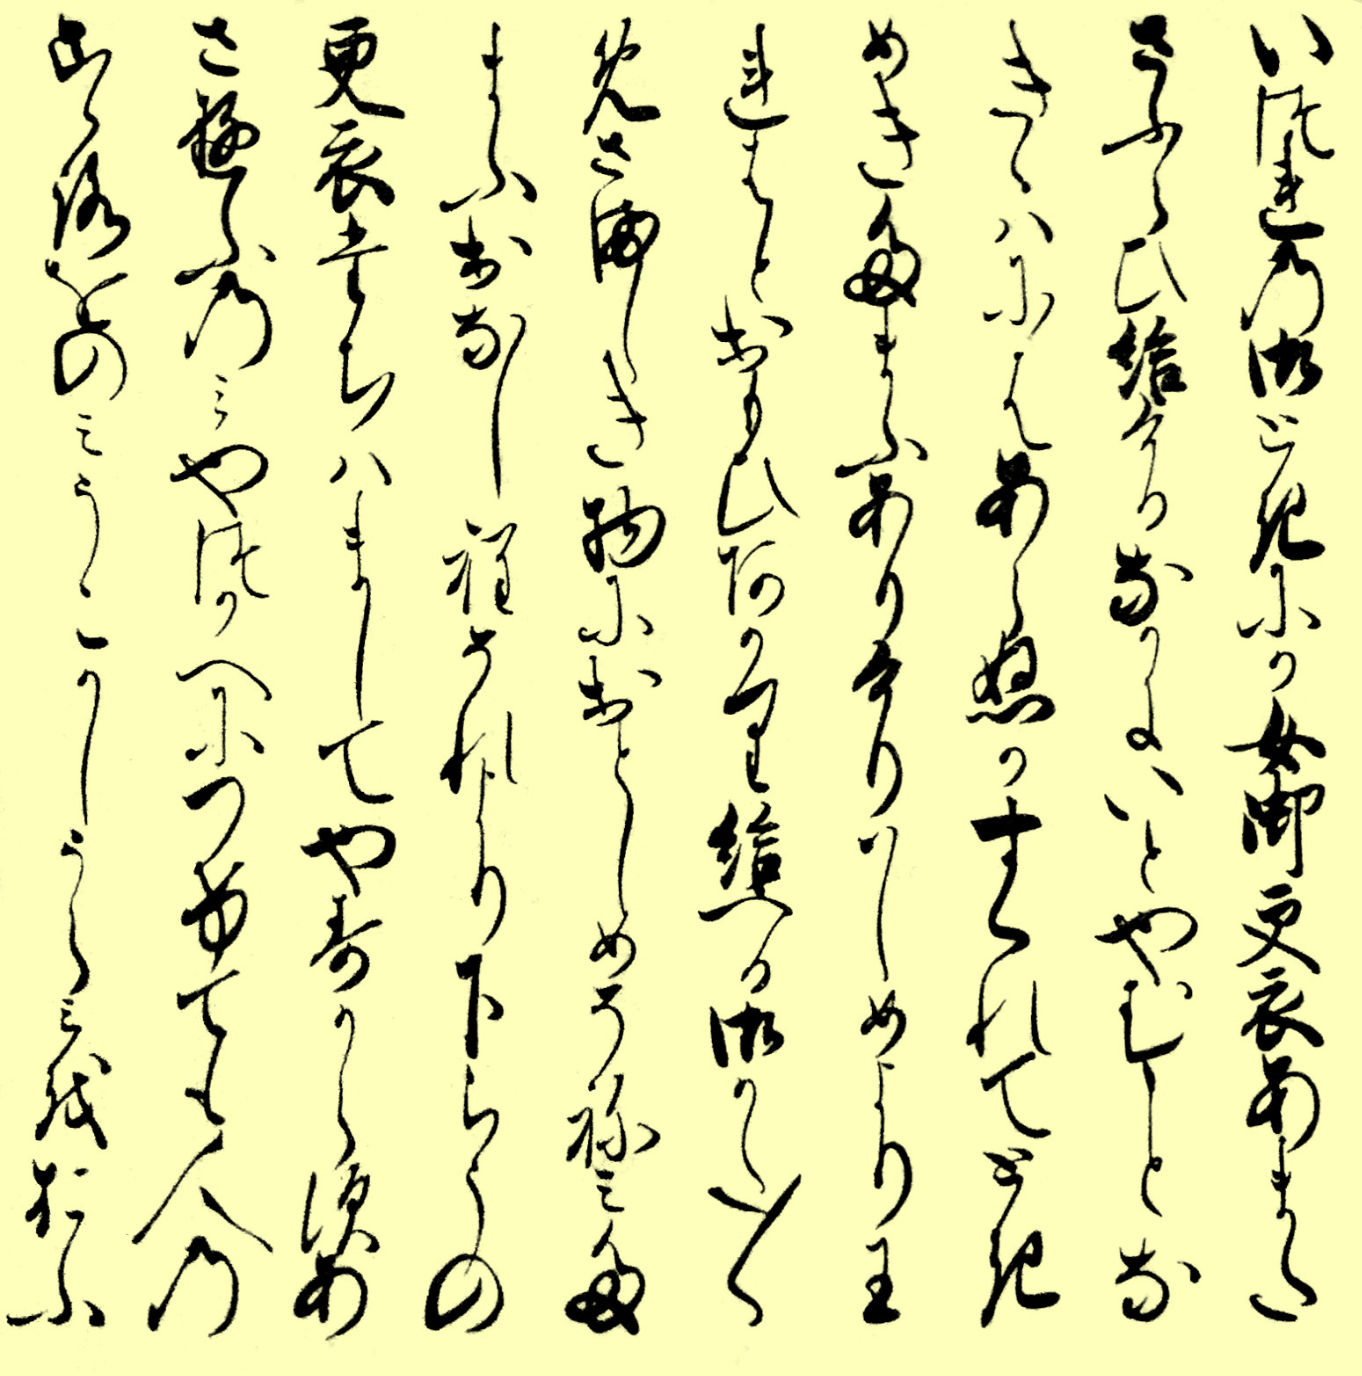 いつれの御ときにか女御更衣あまた
さふらひ給けるなかにいとやむことな
きゝハにはあらぬかすくれてとき
めきたまふありけりハしめより王
れはとおもひあかり給へる御かた〳〵
めさましき物におとしめそねミた
まふおなし程それより下らうの
更衣たちハましてやすからすあ
さゆふのミやつかへにつけても人の
こゝろをのミうこかしうらミをおふ